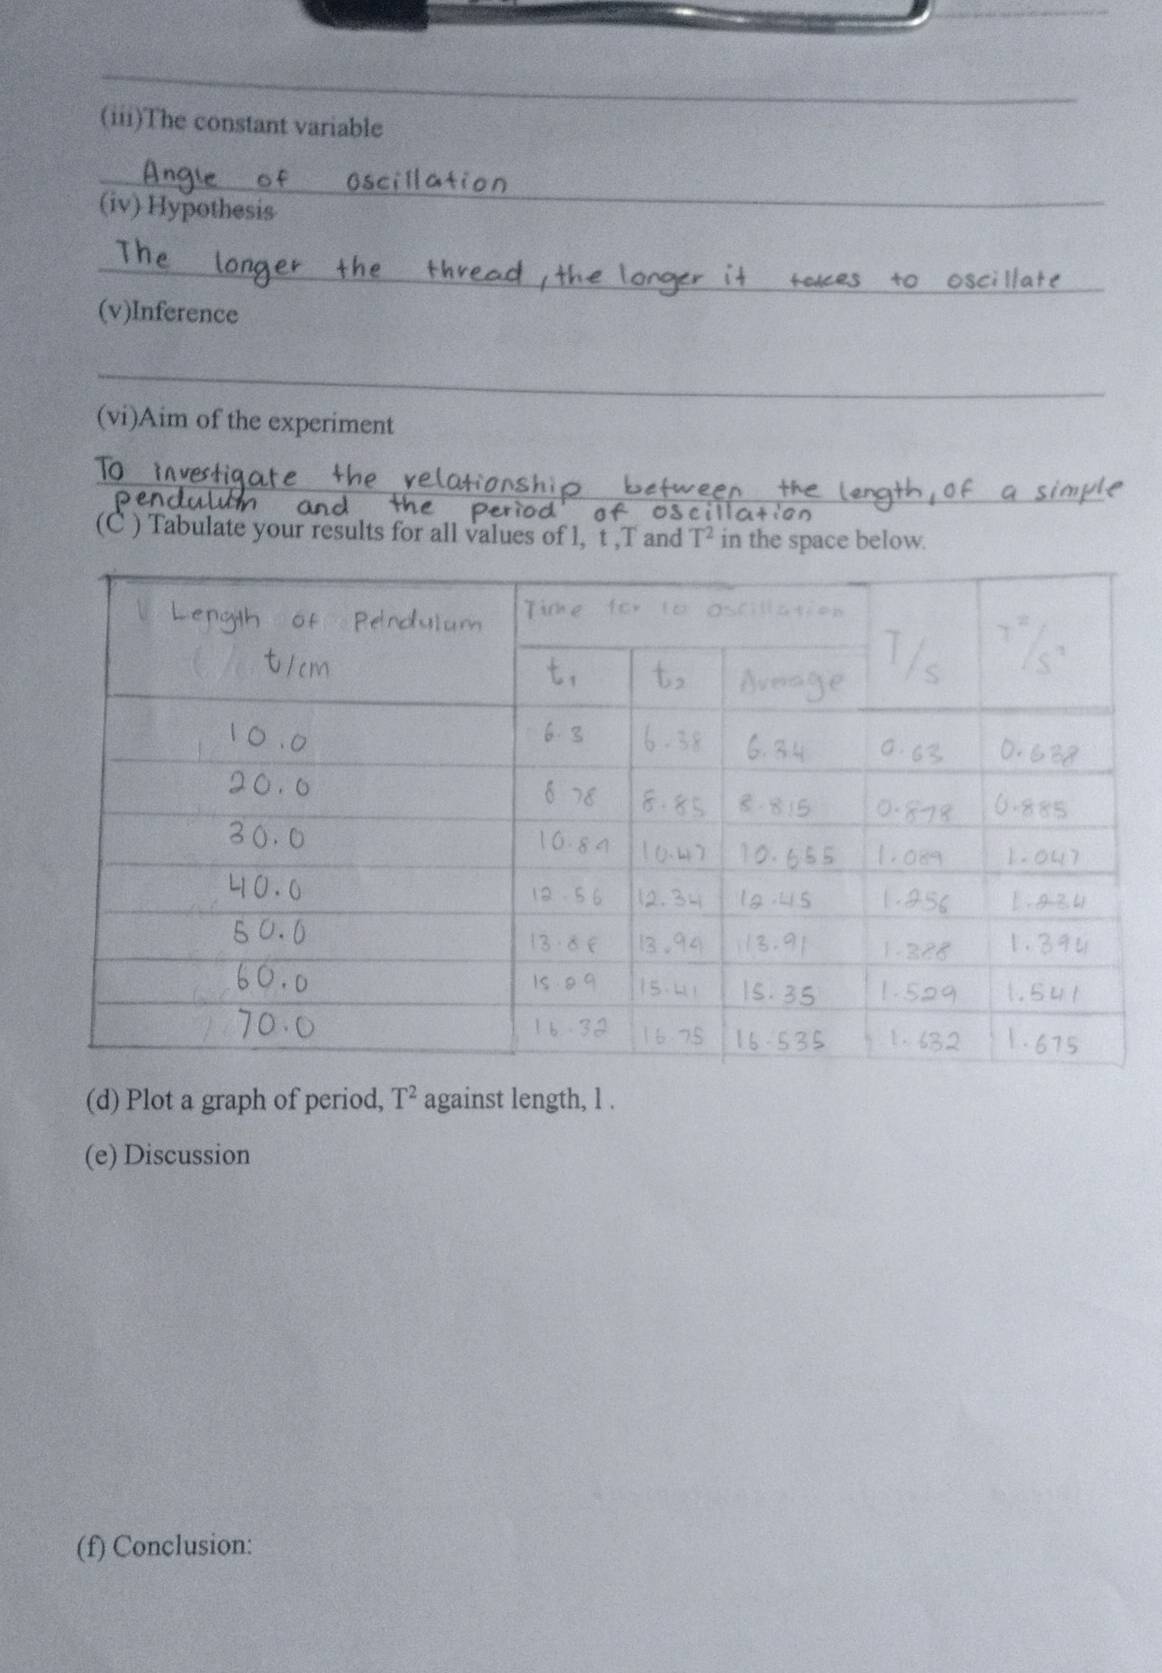 (iii)The constant variable
Angle of oscillation
(iv) Hypothesis
The longer the thread, the longer it takes to oscillate
(v)Inference
(vi)Aim of the experiment
To investigate the relationship between the length, of a simple
pendulum and the period of oscillation
(C ) Tabulate your results for all values of l, t ,T and T² in the space below.
Length of Pendulum Time for 10 oscillation
t/cm t₁ t₂ Average T/s T²/s²
10.0 6.3 6.38 6.34 0.63 0.638
20.0 8.78 8.85 8.815 0.878 0.885
30.0 10.89 10.47 10.655 1.089 1.047
40.0 12.56 12.34 12.45 1.256 1.234
50.0 13.88 13.94 13.91 1.388 1.394
60.0 15.41 15.35 1.529 1.541
70.0 16.32 16.75 16.535 1.632 1.675
(d) Plot a graph of period, T² against length, l .
(e) Discussion
(f) Conclusion: